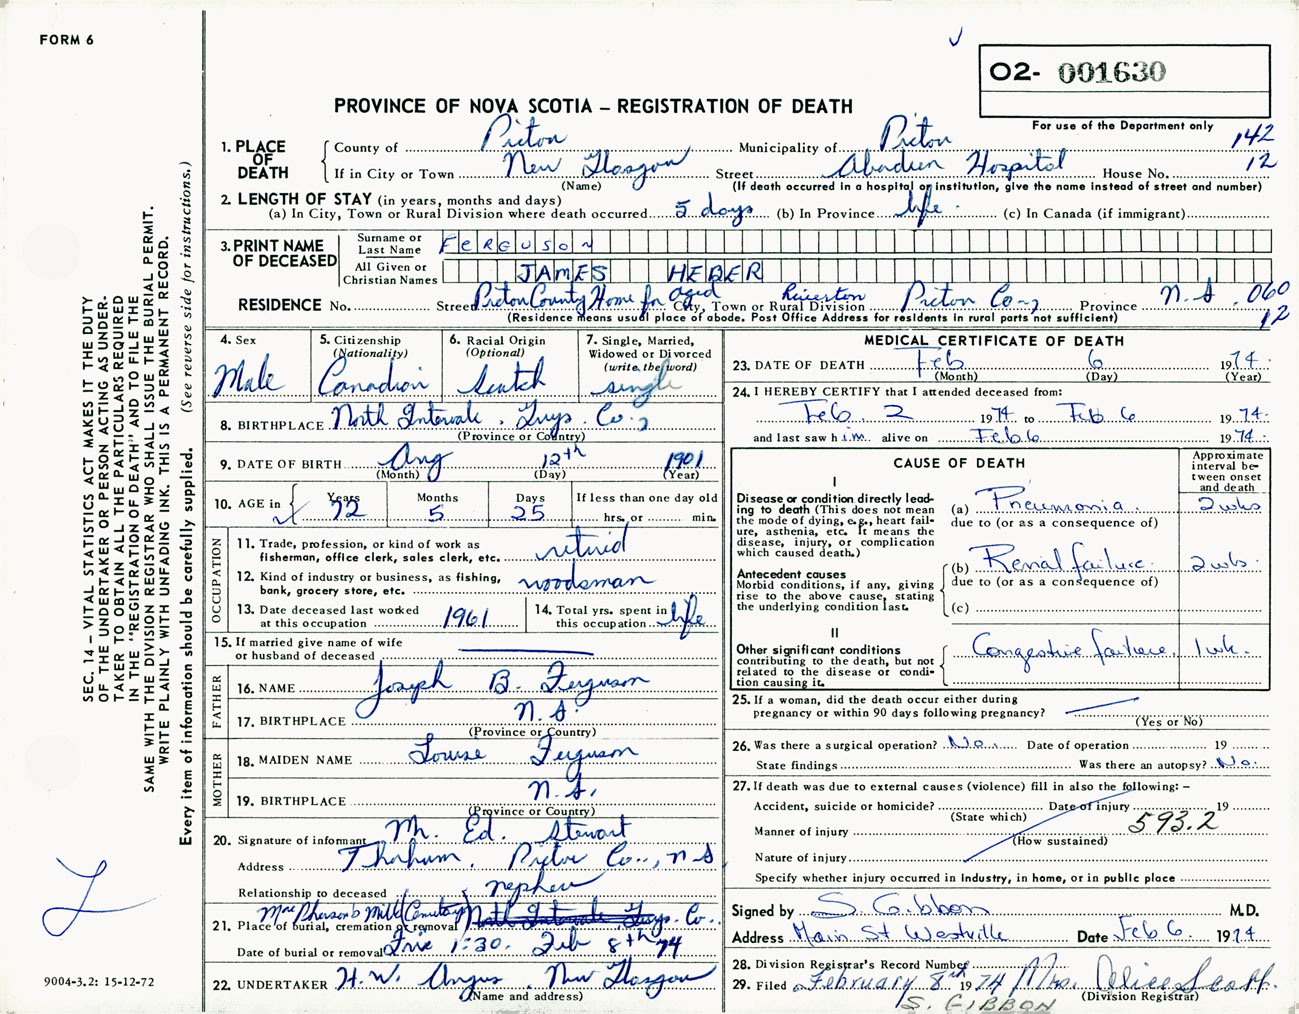 FORM 6
O2- 001630
PROVINCE OF NOVA SCOTIA – REGISTRATION OF DEATH
For use of the Department only
142
12
1. PLACE OF DEATH
County of Pictou Municipality of Pictou
If in City or Town New Glasgow Street Aberdeen Hospital House No.
(Name) (If death occurred in a hospital or institution, give the name instead of street and number)
2. LENGTH OF STAY (in years, months and days)
(a) In City, Town or Rural Division where death occurred 5 days (b) In Province life (c) In Canada (if immigrant)
3. PRINT NAME OF DECEASED
Surname or Last Name FERGUSON
All Given or Christian Names JAMES HEBER
RESIDENCE No. Street Pictou County Home for Aged City, Town or Rural Division Riverton Pictou Co. Province N.S. 060
(Residence means usual place of abode. Post Office Address for residents in rural parts not sufficient) 12
4. Sex Male
5. Citizenship (Nationality) Canadian
6. Racial Origin (Optional) Scotch
7. Single, Married, Widowed or Divorced (write the word) single
8. BIRTHPLACE North Intervale, Guys. Co.,
(Province or Country)
9. DATE OF BIRTH Aug 12th 1901
(Month) (Day) (Year)
10. AGE in Years 72 Months 5 Days 25 If less than one day old hrs. or min.
OCCUPATION
11. Trade, profession, or kind of work as fisherman, office clerk, sales clerk, etc. retired
12. Kind of industry or business, as fishing, bank, grocery store, etc. woodsman
13. Date deceased last worked at this occupation 1961
14. Total yrs. spent in this occupation life
15. If married give name of wife or husband of deceased
FATHER
16. NAME Joseph B. Ferguson
17. BIRTHPLACE N.S.
(Province or Country)
MOTHER
18. MAIDEN NAME Louise Ferguson
19. BIRTHPLACE N.S.
(Province or Country)
20. Signature of informant Mr. Ed. Stewart
Address Thorburn, Pictou Co., N.S.
Relationship to deceased nephew
21. Place of burial, cremation or removal Cemetery North Intervale Guys. Co.
Date of burial or removal 1:30. Feb 8th 74
22. UNDERTAKER H.W. Angus, New Glasgow
(Name and address)
MEDICAL CERTIFICATE OF DEATH
23. DATE OF DEATH Feb 6 1974
(Month) (Day) (Year)
24. I HEREBY CERTIFY that I attended deceased from:
Feb 2 1974 to Feb 6 1974
and last saw him alive on Feb 6 1974
CAUSE OF DEATH
Approximate interval between onset and death
I
Disease or condition directly leading to death (This does not mean the mode of dying, e.g., heart failure, asthenia, etc. It means the disease, injury, or complication which caused death.)
(a) Pneumonia 2 wks
due to (or as a consequence of)
Antecedent causes
Morbid conditions, if any, giving rise to the above cause, stating the underlying condition last.
(b) Renal failure 2 wks
due to (or as a consequence of)
(c)
II
Other significant conditions contributing to the death, but not related to the disease or condition causing it.
Congestive failure 1 wk.
25. If a woman, did the death occur either during pregnancy or within 90 days following pregnancy?
(Yes or No)
26. Was there a surgical operation? No Date of operation 19
State findings Was there an autopsy? No
27. If death was due to external causes (violence) fill in also the following: –
Accident, suicide or homicide? Date of injury 19
(State which)
Manner of injury 593.2
(How sustained)
Nature of injury
Specify whether injury occurred in Industry, in home, or in public place
Signed by S Gibbon M.D.
Address Main St Westville Date Feb 6 1974
28. Division Registrar's Record Number
29. Filed February 8th 1974 Mrs. Alice Scott
(Division Registrar)
S. GIBBON
SEC. 14 – VITAL STATISTICS ACT MAKES IT THE DUTY
OF THE UNDERTAKER OR PERSON ACTING AS UNDER-
TAKER TO OBTAIN ALL THE PARTICULARS REQUIRED
IN THE "REGISTRATION OF DEATH" AND TO FILE THE
SAME WITH THE DIVISION REGISTRAR WHO SHALL ISSUE THE BURIAL PERMIT.
WRITE PLAINLY WITH UNFADING INK. THIS IS A PERMANENT RECORD.
Every item of information should be carefully supplied. (See reverse side for instructions.)
9004-3.2: 15-12-72